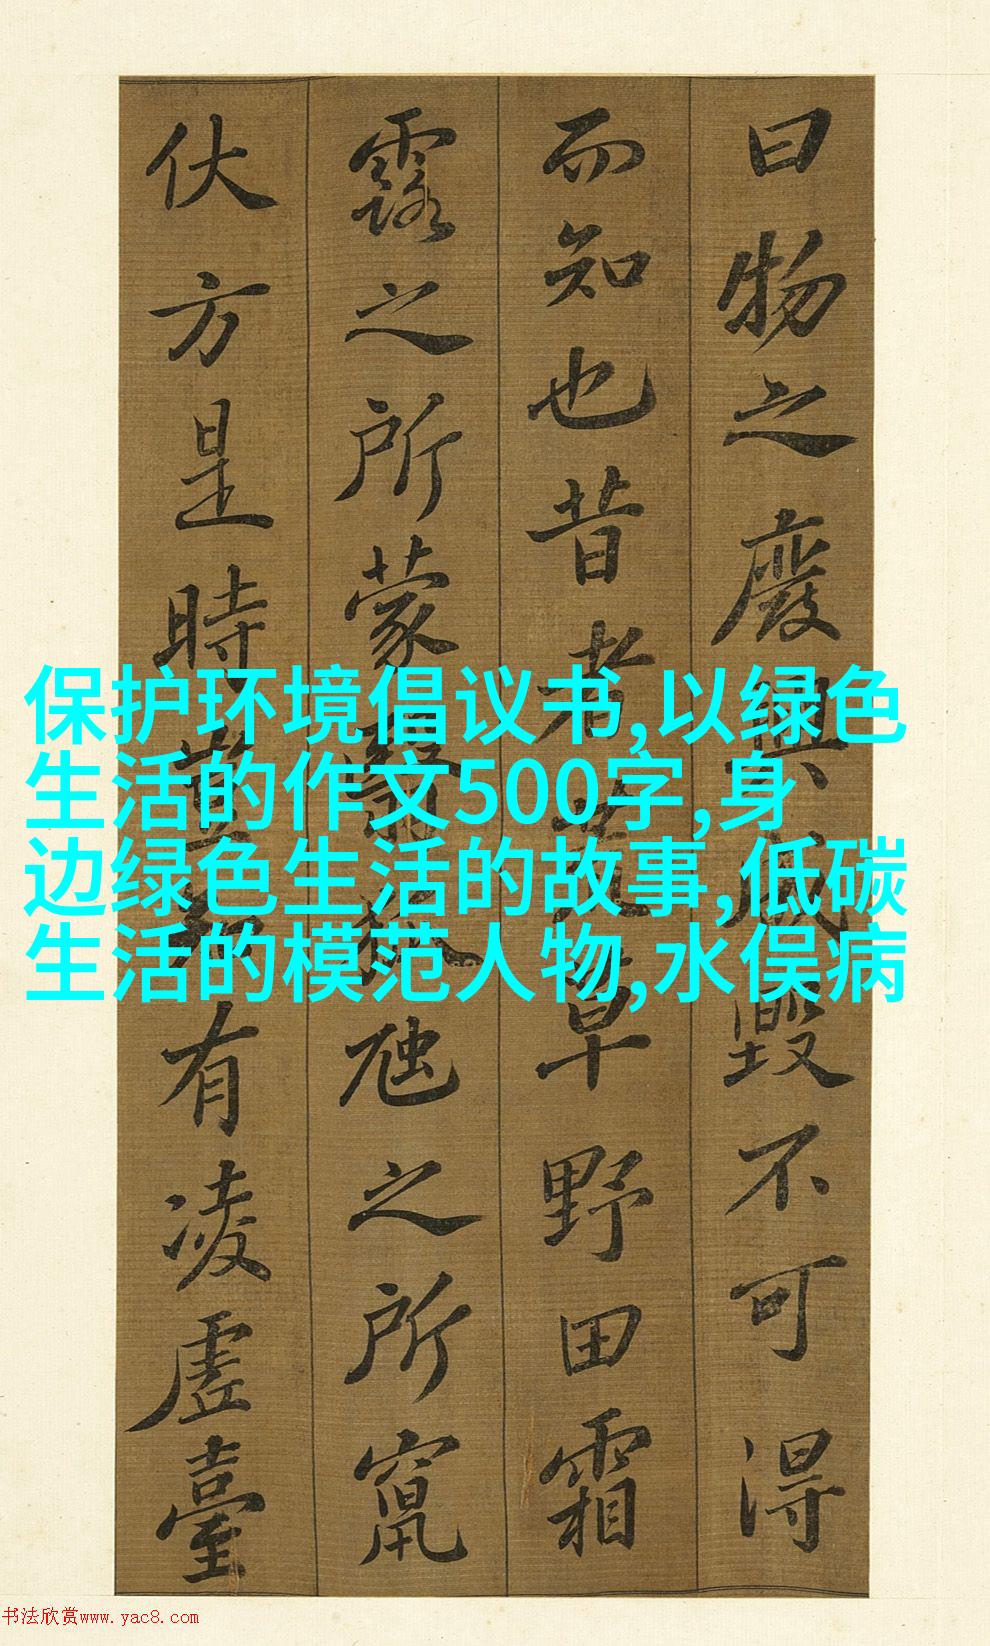 曰物之廢興成毀不可得
而知也昔者荒草野田霜
露之所蒙翳狐虺之所竄
伏方是時豈知有凌虛臺
保护环境倡议书,以绿色
生活的作文500字,身
边绿色生活的故事,低碳
生活的模范人物,水俣病
书法欣赏www.yac8.com